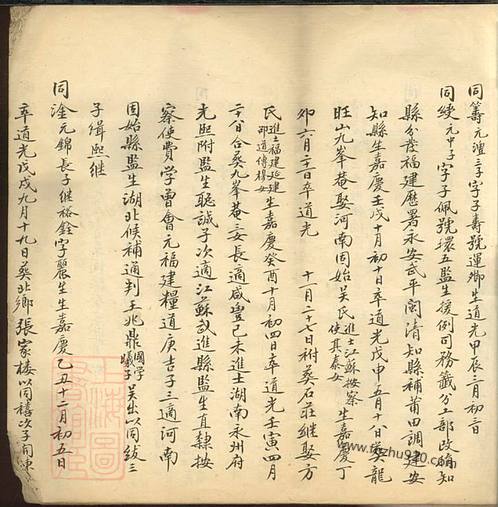 同籌元澶三子字子壽號運卿生道光甲辰三月初三日
同綬元甲子字子佩號環五監生援例司務籤分工部改捐知
縣分發福建歷署永安武平閩清知縣補莆田調建安
知縣生嘉慶壬戌十月初十日卒道光戊申五月十八日葬龍
旺山九峯菴娶河南固始吳氏進士江蘇按察使其泰女生嘉慶丁
卯六月二十日卒道光 十一月二十七日祔葬石莊繼娶方
氏進士福建延建邵道傳穆女生嘉慶癸酉十月初四日卒道光壬寅四月
二十八日合葬九峯菴妾長適咸豐己未進士湖南永州府
光熙附監生聰誠子次適江蘇武進縣監生直隸按
察使費學曾會元福建糧道庚吉子三適河南
固始縣監生湖北候補通判王兆鼎國學 子吳出以同紱三
子緝熙繼
同淦元錦長子繼裕銓字麗生生嘉慶乙丑十二月初五日
卒道光戊戌九月十九日葬北鄉張家樓以同禧次子同